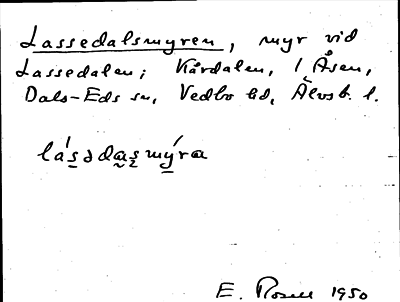 Lassedalsmyren, myr vid
Lassedalen; Kårdalen, 1 Åsen,
Dals-Eds sn, Vedbo hd, Älvsb. l.
lásədasmýra
E. 1950